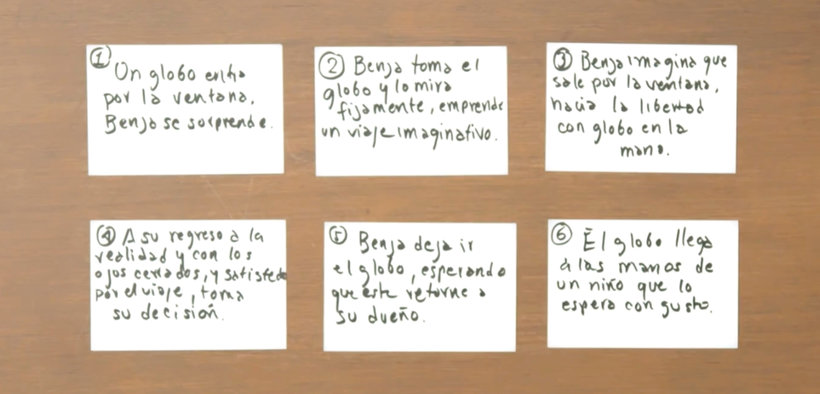 ① Un globo entra
por la ventana.
Benja se sorprende.
② Benja toma el
globo y lo mira
fijamente, emprende
un viaje imaginativo.
③ Benja imagina que
sale por la ventana,
hacia la libertad
con globo en la
mano.
④ A su regreso a la
realidad y con los
ojos cerrados, y satisfecho
por el viaje, toma
su decisión.
⑤ Benja deja ir
el globo, esperando
que este retorne a
su dueño.
⑥ El globo llega
a las manos de
un niño que lo
espera con gusto.